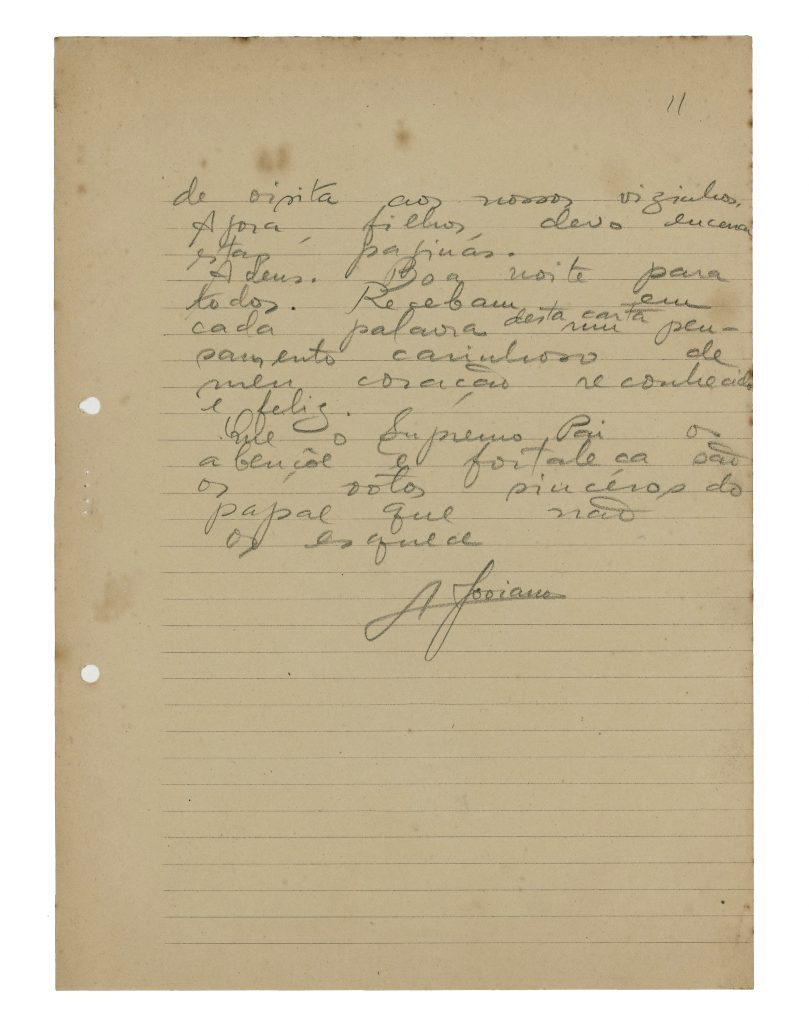 11
de visita aos nossos vizinhos.
Agora, filhos, devo encerrar
estas paginas.
Adeus. Boa noite para
todos. Recebam em
cada palavra desta carta um pen-
samento carinhoso de
meu coração reconhecido
e feliz.
Que o Supremo Pai os
abençôe e fortaleça são
os votos sincéros do
papae que não
os esquece
A Joviano